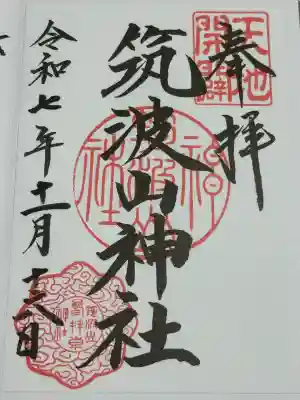 奉拝
天地
開闢
筑波山神社
令和七年十一月十六日